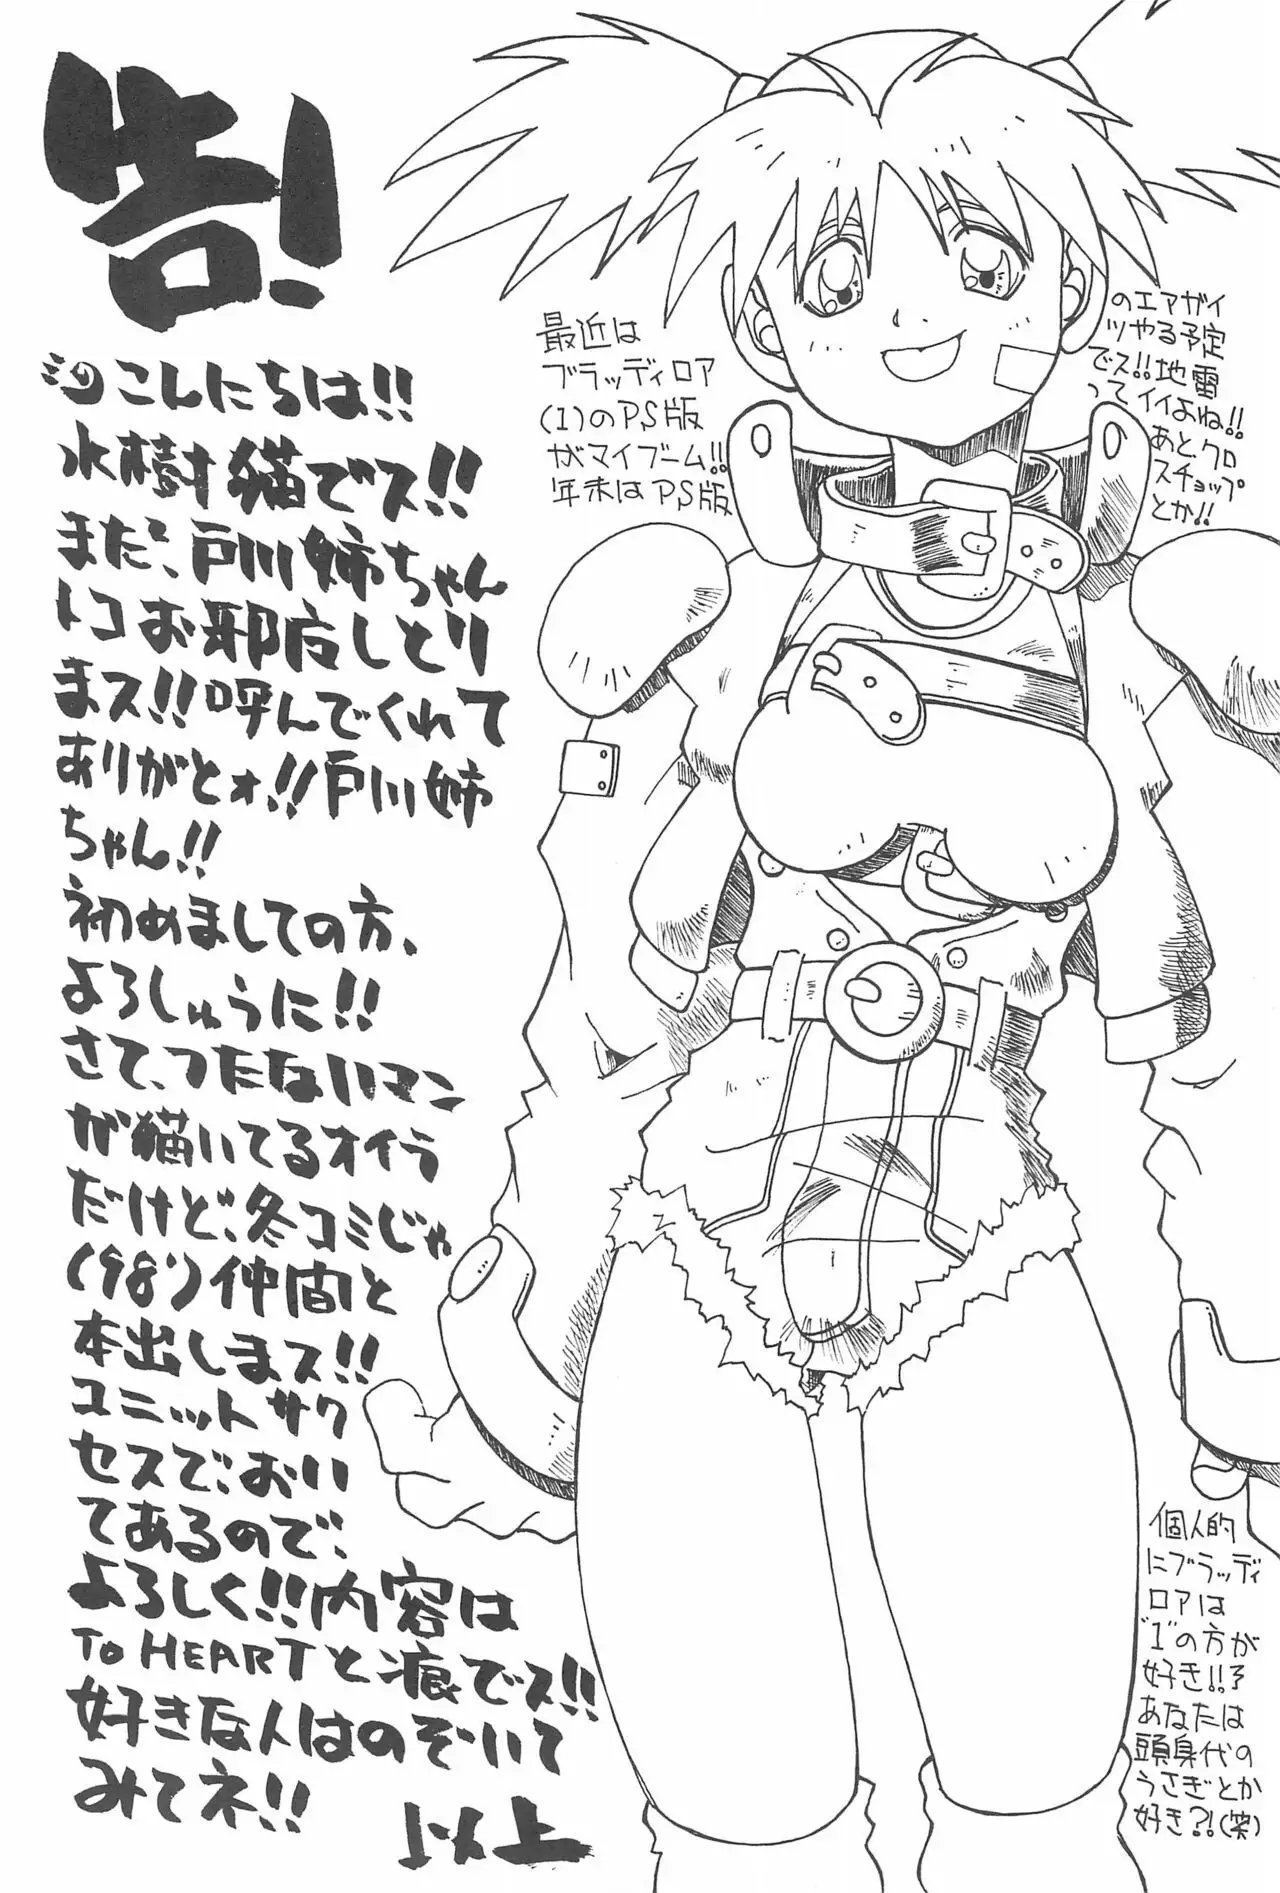 告!
こんにちは!!
水樹猫でス!!
まだ、戸川姉ちゃん
トコお邪広しとり
まス!!呼んでくれて
ありがとォ!!戸川姉
ちゃん!!
初めましての方、
よろしゅうに!!
さて、つたないマン
が猫いてるオイラ
だけど、冬コミじゃ
(98')仲間と
本出しまス!!
ユニットサク
セスで、おい
てあるので、
よろしく!!内容は
To HEARTと痕でス!!
好きな人はのぞいて
みてネ!!
以上
最近は
ブラッディロア
(1)のPS版
がマイブーム!!
年末はPS版
のエアガイ
ツやる予定
でス!!地雷
ってイイよね!!
あと、クロ
スチョップ
とか!!
個人的
にブラッディ
ロアは
"1"の方が
好き!!?
あなたは
頭身代の
うさぎとか
好き?!(笑)